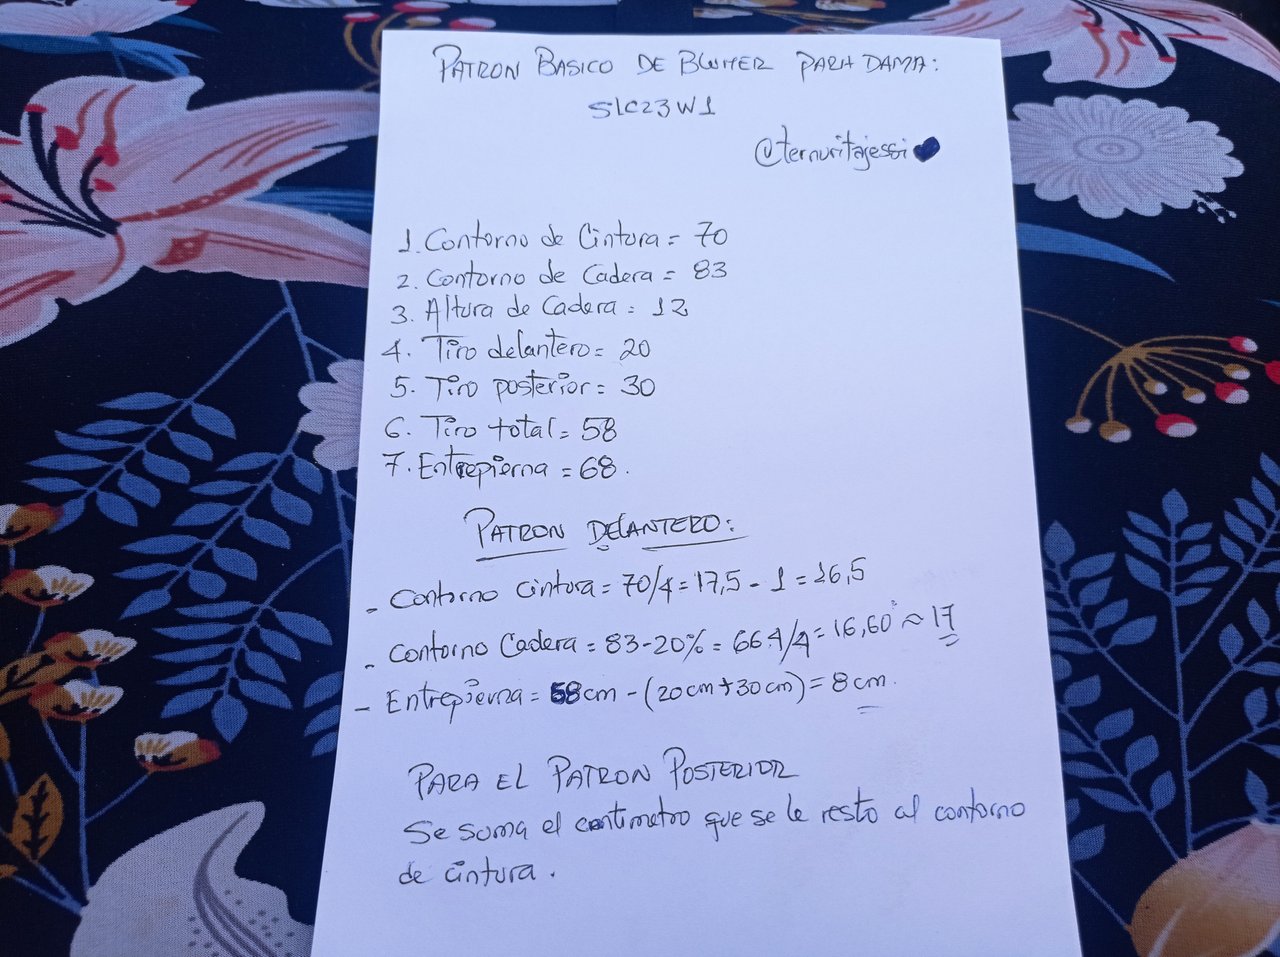 PATRON BASICO DE BLUMER PARA DAMA:
SLC23W1
@ternuritajessi
1. Contorno de Cintura = 70
2. Contorno de Cadera = 83
3. Altura de Cadera = 12
4. Tiro delantero = 20
5. Tiro posterior = 30
6. Tiro total = 58
7. Entrepierna = 68.
PATRON DELANTERO:
- Contorno cintura = 70/4 = 17,5 - 1 = 16,5
- Contorno Cadera = 83-20% = 66.4/4 = 16,60 ~ 17
- Entrepierna = 58cm - (20cm+30cm) = 8cm.
PARA EL PATRON POSTERIOR
Se suma el centimetro que se le resto al contorno
de cintura.